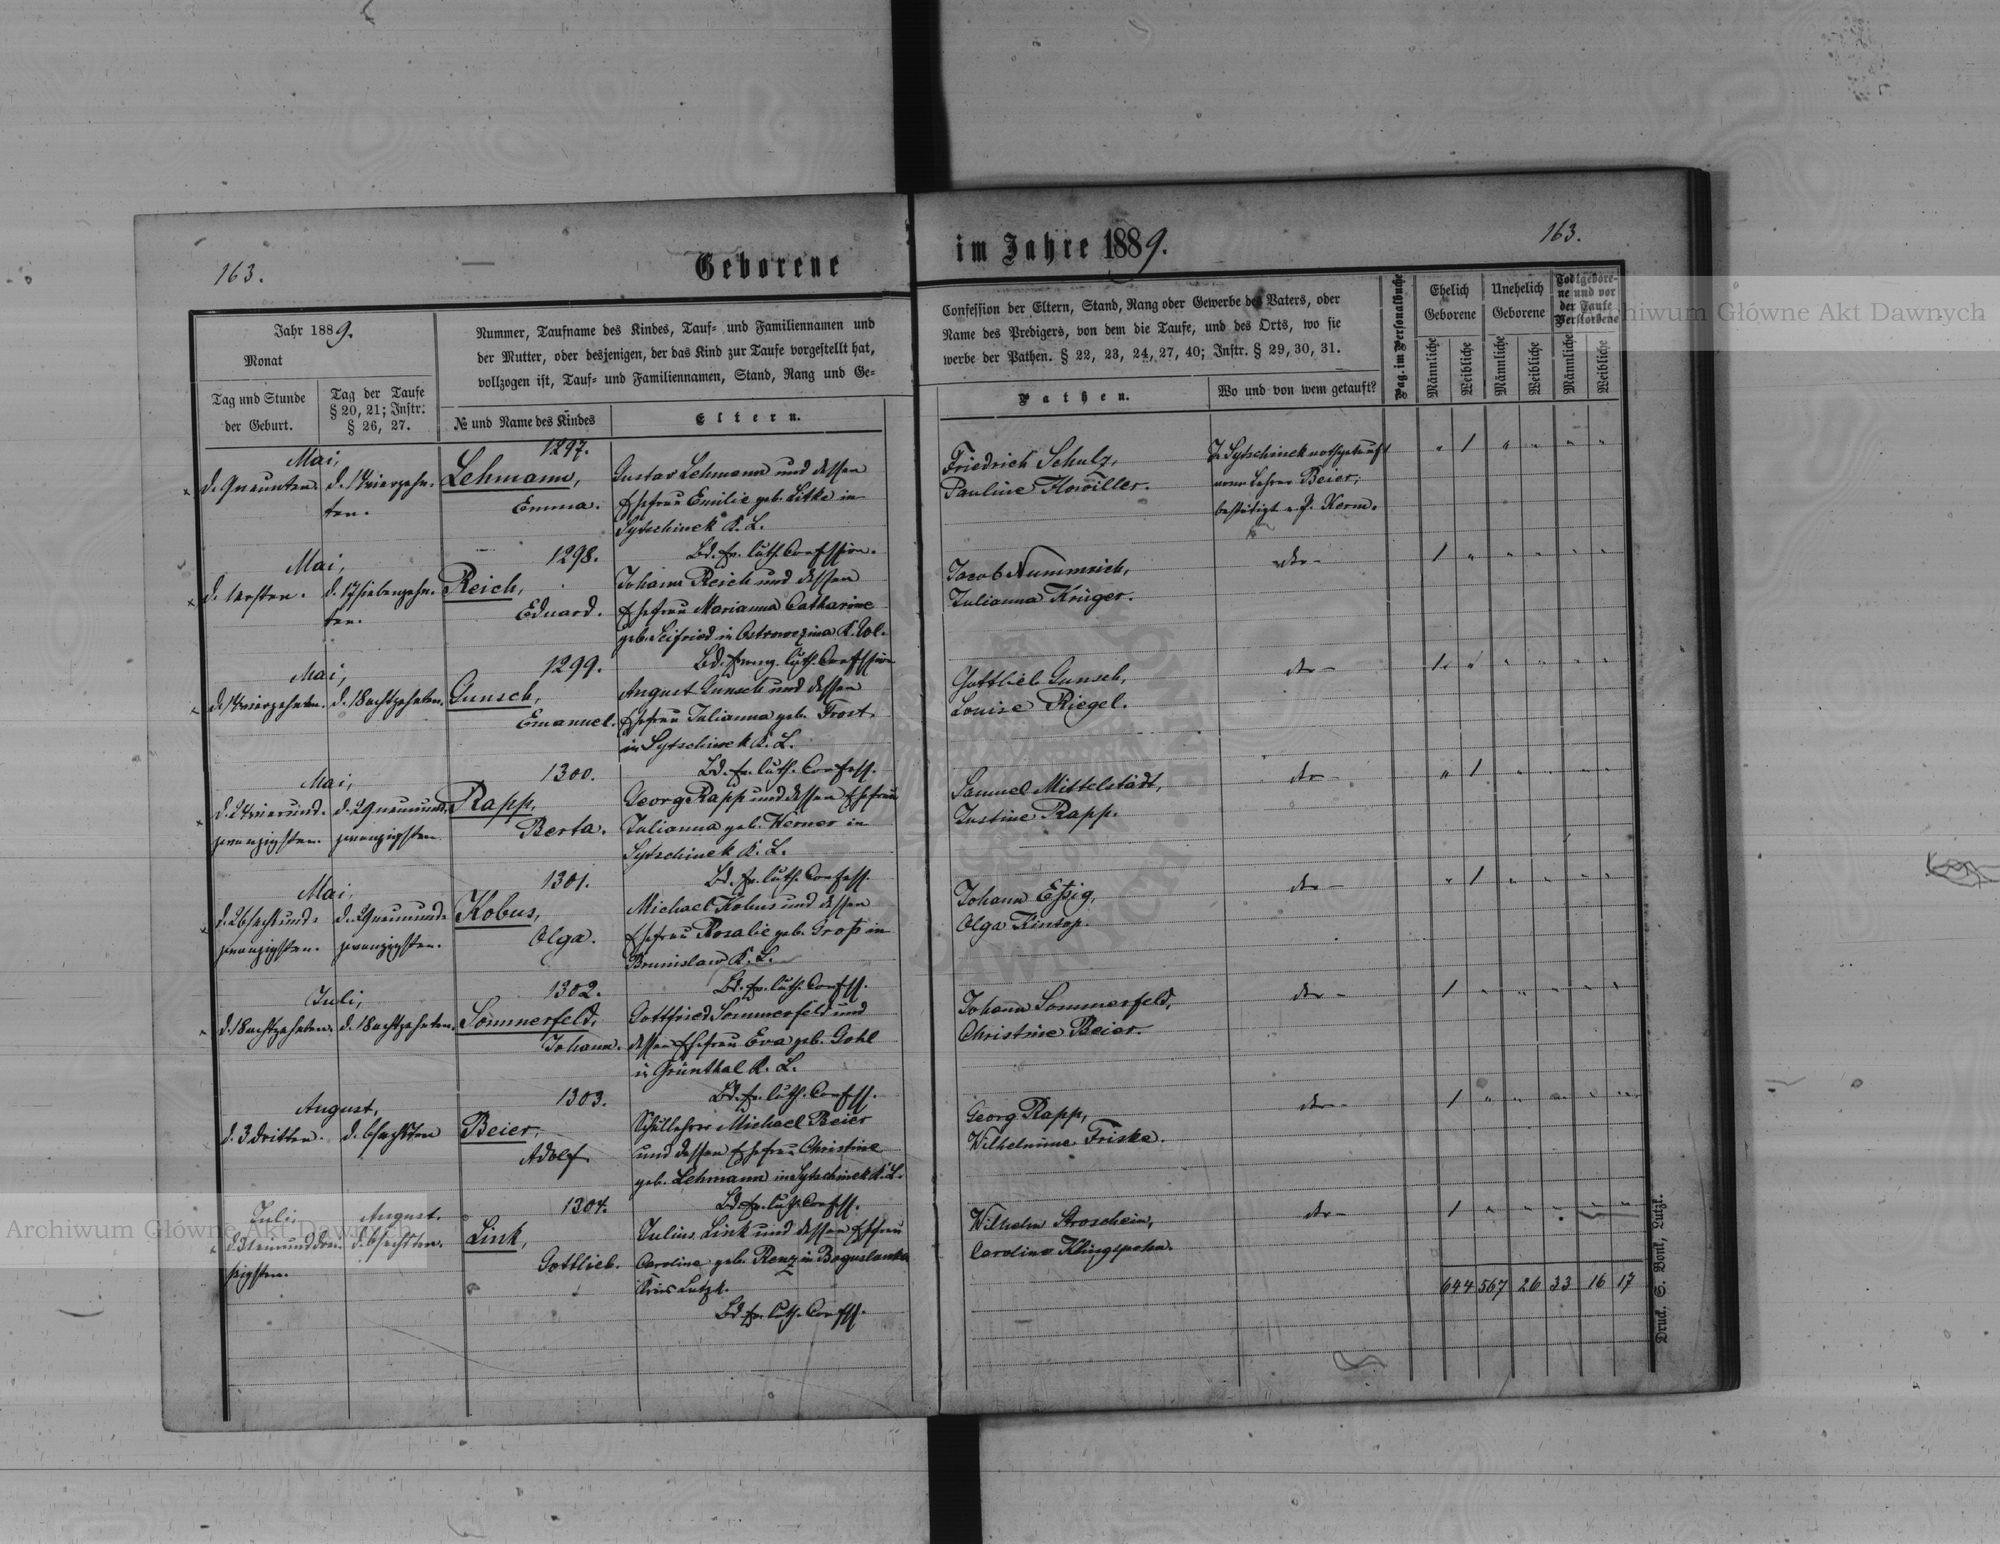 163.
Geborene
im Jahre 1889.
163.
Jahr 1889.
Monat
Tag und Stunde
der Geburt.
Tag der Taufe
§ 20, 21; Instr.
§ 26, 27.
Nummer, Taufname des Kindes, Tauf- und Familiennamen und
der Mutter, oder desjenigen, der das Kind zur Taufe vorgestellt hat,
vollzogen ist, Tauf- und Familiennamen, Stand, Rang und Ge-
№ und Name des Kindes
Eltern.
Confession der Eltern, Stand, Rang oder Gewerbe des Vaters, oder
Name des Predigers, von dem die Taufe, und des Orts, wo sie
werbe der Pathen. § 22, 23, 24, 27, 40; Instr. § 29, 30, 31.
Pathen.
Wo und von wem getauft?
Pag. im Personalbuche
Ehelich
Geborene
Unehelich
Geborene
Todtgebore-
ne und vor
der Taufe
Verstorbene
Männliche
Weibliche
Männliche
Weibliche
Männliche
Weibliche
Mai,
d. 9 neunten.
d. 14 vierzehn-
ten.
1297.
Lehmann,
Emma.
Gustav Lehmann und dessen
Ehefrau Emilie geb. Litke in
Sytschinek K. L.
Bd. ev. luth. Confession.
Friedrich Schulz,
Pauline Howiller.
In Sytschinek nothgetauft
vom Lehrer Beier;
bestätigt v. P. Kerm.
" 1 " " " "
Mai,
d. 1 ersten.
d. 17 siebenzehn-
ten.
1298.
Reich,
Eduard.
Johann Reich und dessen
Ehefrau Marianna Catharine
geb. Seifried in Ostrowezina K. Wol.
Bd. evang. luth. Confession
Jacob Nummrich,
Julianna Krüger.
der -
1 " " " " "
Mai,
d. 14 vierzehnten.
d. 18 achtzehnten.
1299.
Gunsch,
Emanuel.
August Gunsch und dessen
Ehefrau Julianna geb. Frost
in Sytschinek K. L.
Bd. ev. luth. Confess.
Gottlieb Gunsch,
Louise Riegel.
der -
1 " " " " "
Mai,
d. 24 vierund-
zwanzigsten.
d. 29 neunund-
zwanzigsten
1300.
Rapp,
Berta.
Georg Rapp und dessen Ehefrau
Julianna geb. Werner in
Sytschinek K. L.
Bd. ev. luth. Confess.
Samuel Mittelstädt,
Justine Rapp.
der -
" 1 " " " "
Mai,
d. 26 sechsund-
zwanzigsten.
d. 29 neunund-
zwanzigsten.
1301.
Kobus,
Olga.
Michael Kobus und dessen
Ehefrau Rosalie geb. Groß in
Brunislaw K. L.
Bd. ev. luth. Confess.
Johann Eßig,
Olga Kintop.
der -
" 1 " " " "
Juli,
d. 18 achtzehnten.
d. 18 achtzehnten.
1302.
Sommerfeld,
Johann.
Gottfried Sommerfeld und
dessen Ehefrau Eva geb. Gohl
in Grünthal K. L.
Bd. ev. luth. Confess.
Johann Sommerfeld,
Christine Beier.
der -
1 " " " " "
August,
d. 3 dritten.
d. 6 sechsten
1303.
Beier,
Adolf
Schullehrer Michael Beier
und dessen Ehefrau Christine
geb. Lehmann in Sytschinek K. L.
Bd. ev. luth. Confess.
Georg Rapp,
Wilhelmine Friske.
der -
1 " " " " "
Juli,
d. 31 einunddrei-
ßigsten.
August.
d. 6 sechsten.
1304.
Link,
Gottlieb.
Julius Link und dessen Ehefrau
Caroline geb. Renz in Boguslawka
Kreis Lutzk.
Bd. ev. luth. Confess.
Wilhelm Aroschein,
Caroline Klingspohn.
der -
1 " " " " "
644 567 26 33 16 17
Druck. S. Bonk, Lutzk.
Archiwum Główne Akt Dawnych
Archiwum Główne Akt Dawnych